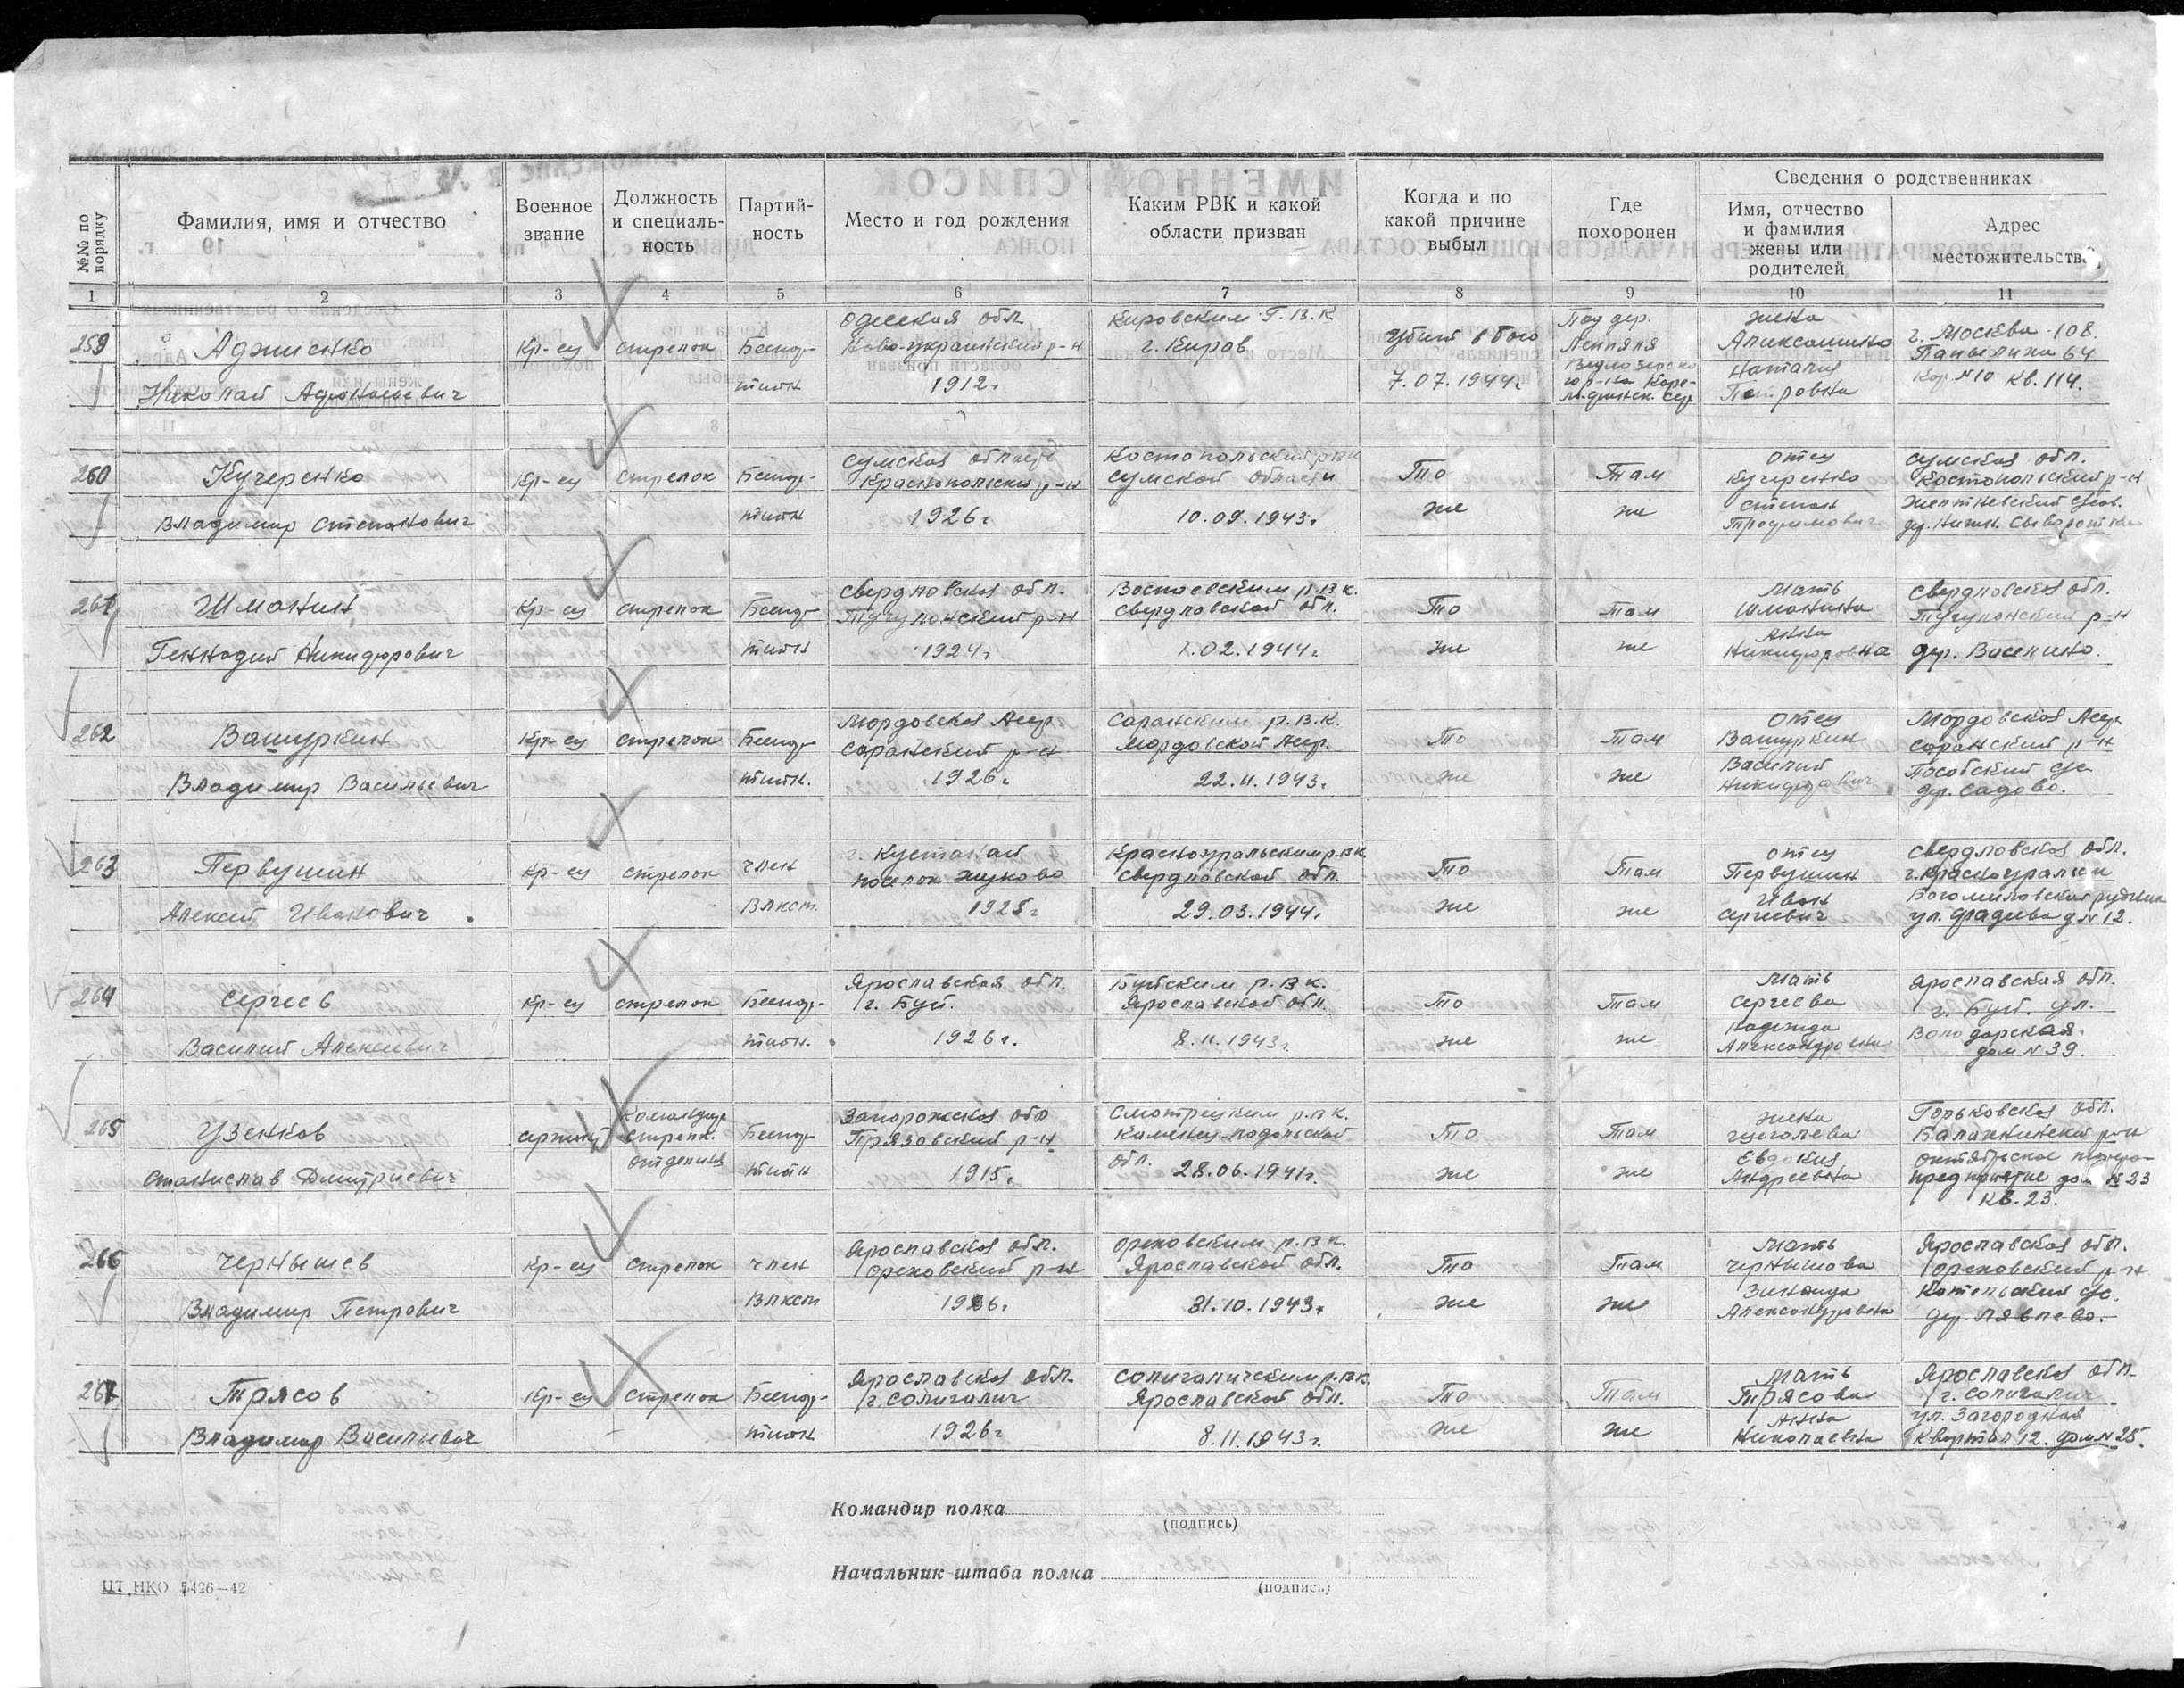 №№ по порядку
Фамилия, имя и отчество
Военное звание
Должность и специаль-ность
Партий-ность
Место и год рождения
Каким РВК и какой области призван
Когда и по какой причине выбыл
Где похоронен
Сведения о родственниках
Имя, отчество и фамилия жены или родителей
Адрес местожительств
1 2 3 4 5 6 7 8 9 10 11
259
Аджиенко
Николай Афонасьевич
Кр-ец
стрелок
Беспар-
тийн
Одесская обл
Ново-украинский р-н
1912 г
Кировским Г.В.К
г. Киров
Убит в бою
7.07.1944 г
Под дер.
жена
Наталия
Петровна
г. Москва-108
64
Кор №10 кв. 114.
260
Кучеренко
Владимир Степанович
Кр-ец
стрелок
Беспар-
тийн
Сумская область
Краснопольский р-н
1926 г
Костопольский рвк
Сумской области
10.09.1943 г
То
же
Там
же
отец
Кучеренко
Степан
Трофимович
Сумская обл.
Костопольский р-н
261
Шмонин
Геннадий Никифорович
Кр-ец
стрелок
Беспар-
тийн
Свердловская обл.
Тугулонский р-н
1924 г
Свердловской обл.
1.02.1944 г
То
же
Там
же
мать
Шмонина
Анна
Никифоровна
Свердловская обл.
Тугулонский р-н
дер. Васелино.
262
Вашуркин
Владимир Васильевич
Кр-ец
стрелок
Беспар-
тийн.
Мордовская Асср
Саранский р-н
1926 г
Саранским р.в.к.
Мордовской Асср.
22.11.1943 г
То
же
Там
же
отец
Вашуркин
Василий
Мордовская Асср
Саранский р-н
дер. Садово.
263
Первушин
Алексей Иванович
Кр-ец
стрелок
член
Влксм
г. Кустанай
поселок Жуково
1925 г
Красноуральским р.вк
Свердловской обл.
29.03.1944 г.
То
же
Там
же
отец
Первушин
Иван
Сергеевич
Свердловская обл.
г. Красноуральск
ул. Фадеева д №12.
264
Сергеев
Василий Алексеевич
Кр-ец
стрелок
Беспар-
тийн.
Ярославская обл.
г. Буй.
1926 г.
Буйским р.вк.
Ярославской обл.
8.11.1943 г
То
же
Там
же
мать
Сергеева
Надежда
Александровна
Ярославская обл.
г. Буй. ул.
Володарская.
дом №39.
265
Узенков
Станислав Дмитриевич
сержант
командир
стрелк.
отделения
Беспар-
тийн
Запорожская обл
Прязовский р-н
1915 г.
Смотрецким р.вк.
Каменец-подольской
обл. 28.06.1941 г.
То
же
Там
же
жена
Щеголева
Евдокия
Андреевна
Горьковская обл.
Балахнинский р-н
предприятие дом №23
кв. 23.
266
Чернышев
Владимир Петрович
Кр-ец
стрелок
член
Влксм
Ярославская обл.
Ореховский р-н
1926 г.
Ореховским р.вк.
Ярославской обл.
31.10.1943 г
То
же
Там
же
мать
Чернышова
Зинаида
Александровна
Ярославская обл.
Ореховский р-н
дер. Лявлево.
267
Трясов
Владимир Васильевич
Кр-ец
стрелок
Беспар-
тийн
Ярославская обл.
г. Солигалич
1926 г
Солигаличским р.вк.
Ярославской обл.
8.11.1943 г.
То
же
Там
же
мать
Трясова
Анна
Николаевна
Ярославская обл.
г. Солигалич
ул. Загородная
квартал 12. дом №25.
Командир полка
(подпись)
Начальник штаба полка
(подпись)
ЦТ НКО 5426—42